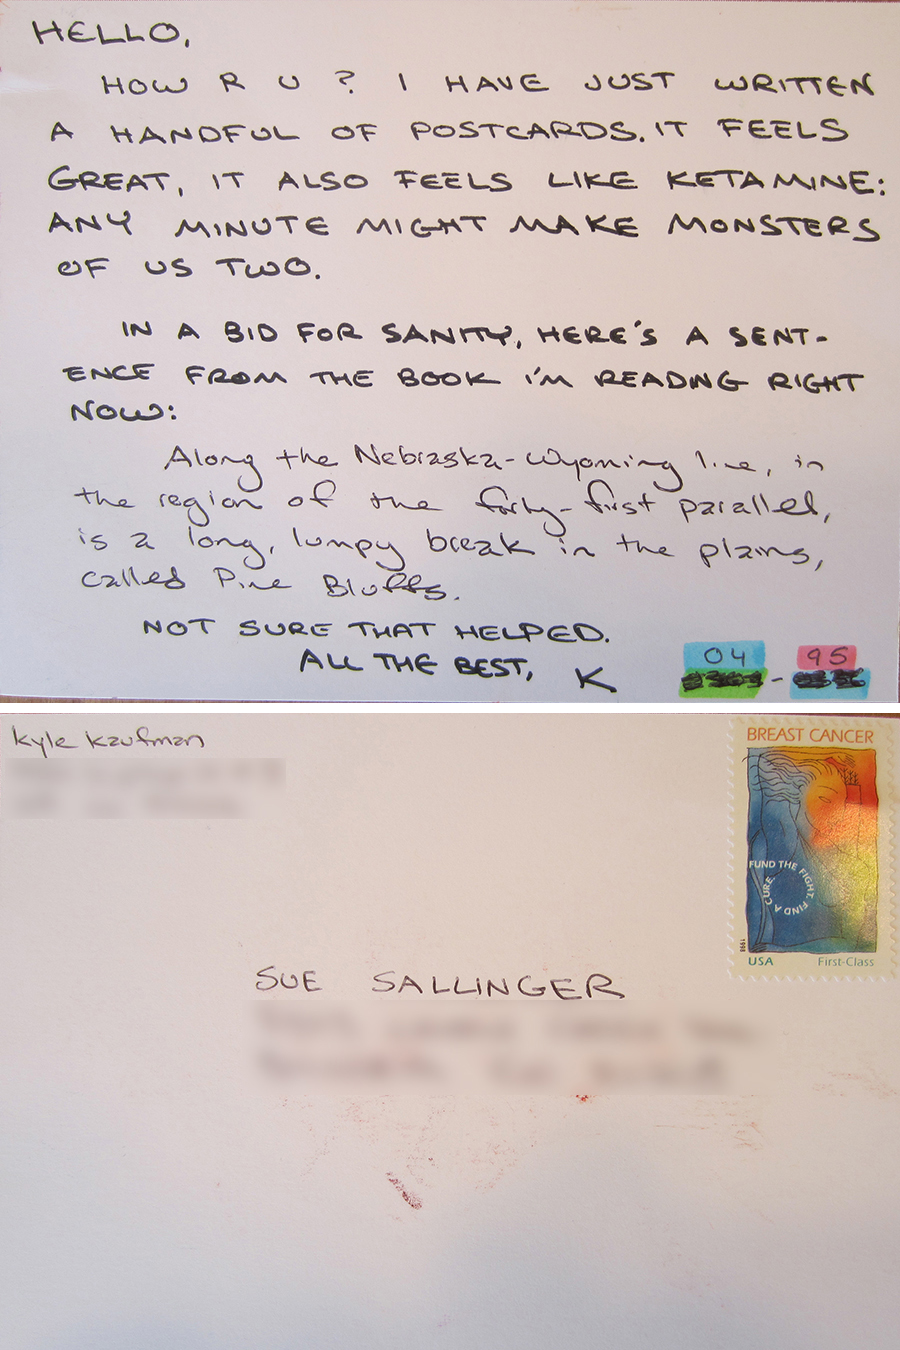 HELLO,
HOW R U? I HAVE JUST WRITTEN
A HANDFUL OF POSTCARDS. IT FEELS
GREAT, IT ALSO FEELS LIKE KETAMINE:
ANY MINUTE MIGHT MAKE MONSTERS
OF US TWO.
IN A BID FOR SANITY, HERE'S A SENT-
ENCE FROM THE BOOK I'M READING RIGHT
NOW:
Along the Nebraska-Wyoming line, in
the region of the forty-first parallel,
is a long, lumpy break in the plains,
called Pine Bluffs.
NOT SURE THAT HELPED.
ALL THE BEST, K
04 95
Kyle Kaufman
BREAST CANCER
FUND THE FIGHT. FIND A CURE.
1998
USA First-Class
SUE SALLINGER